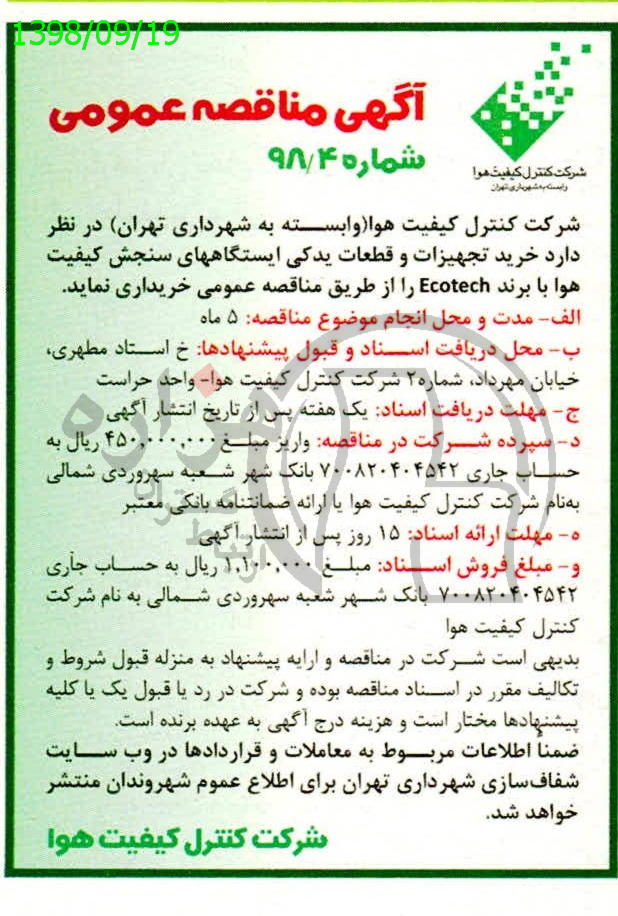 1398/09/19
آگهی مناقصه عمومی
شماره ۹۸/۴
شرکت کنترل کیفیت هوا
وابسته به شهرداری تهران
شرکت کنترل کیفیت هوا(وابسته به شهرداری تهران) در نظر
دارد خرید تجهیزات و قطعات یدکی ایستگاههای سنجش کیفیت
هوا با برند Ecotech را از طریق مناقصه عمومی خریداری نماید.
الف- مدت و محل انجام موضوع مناقصه: ۵ ماه
ب- محل دریافت اسناد و قبول پیشنهادها: خ استاد مطهری،
خیابان مهرداد، شماره۲ شرکت کنترل کیفیت هوا- واحد حراست
ج- مهلت دریافت اسناد: یک هفته پس از تاریخ انتشار آگهی
د- سپرده شرکت در مناقصه: واریز مبلغ ۴۵۰,۰۰۰,۰۰۰ ریال به
حساب جاری ۷۰۰۸۲۰۴۰۴۵۴۲ بانک شهر شعبه سهروردی شمالی
به‌نام شرکت کنترل کیفیت هوا یا ارائه ضمانتنامه بانکی معتبر
ه- مهلت ارائه اسناد: ۱۵ روز پس از انتشار آگهی
و- مبلغ فروش اسناد: مبلغ ۱,۱۰۰,۰۰۰ ریال به حساب جاری
۷۰۰۸۲۰۴۰۴۵۴۲ بانک شهر شعبه سهروردی شمالی به نام شرکت
کنترل کیفیت هوا
بدیهی است شرکت در مناقصه و ارایه پیشنهاد به منزله قبول شروط و
تکالیف مقرر در اسناد مناقصه بوده و شرکت در رد یا قبول یک یا کلیه
پیشنهادها مختار است و هزینه درج آگهی به عهده برنده است.
ضمناً اطلاعات مربوط به معاملات و قراردادها در وب سایت
شفاف‌سازی شهرداری تهران برای اطلاع عموم شهروندان منتشر
خواهد شد.
شرکت کنترل کیفیت هوا